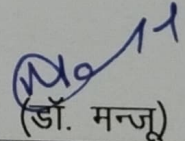 (डॉ. मन्जू)